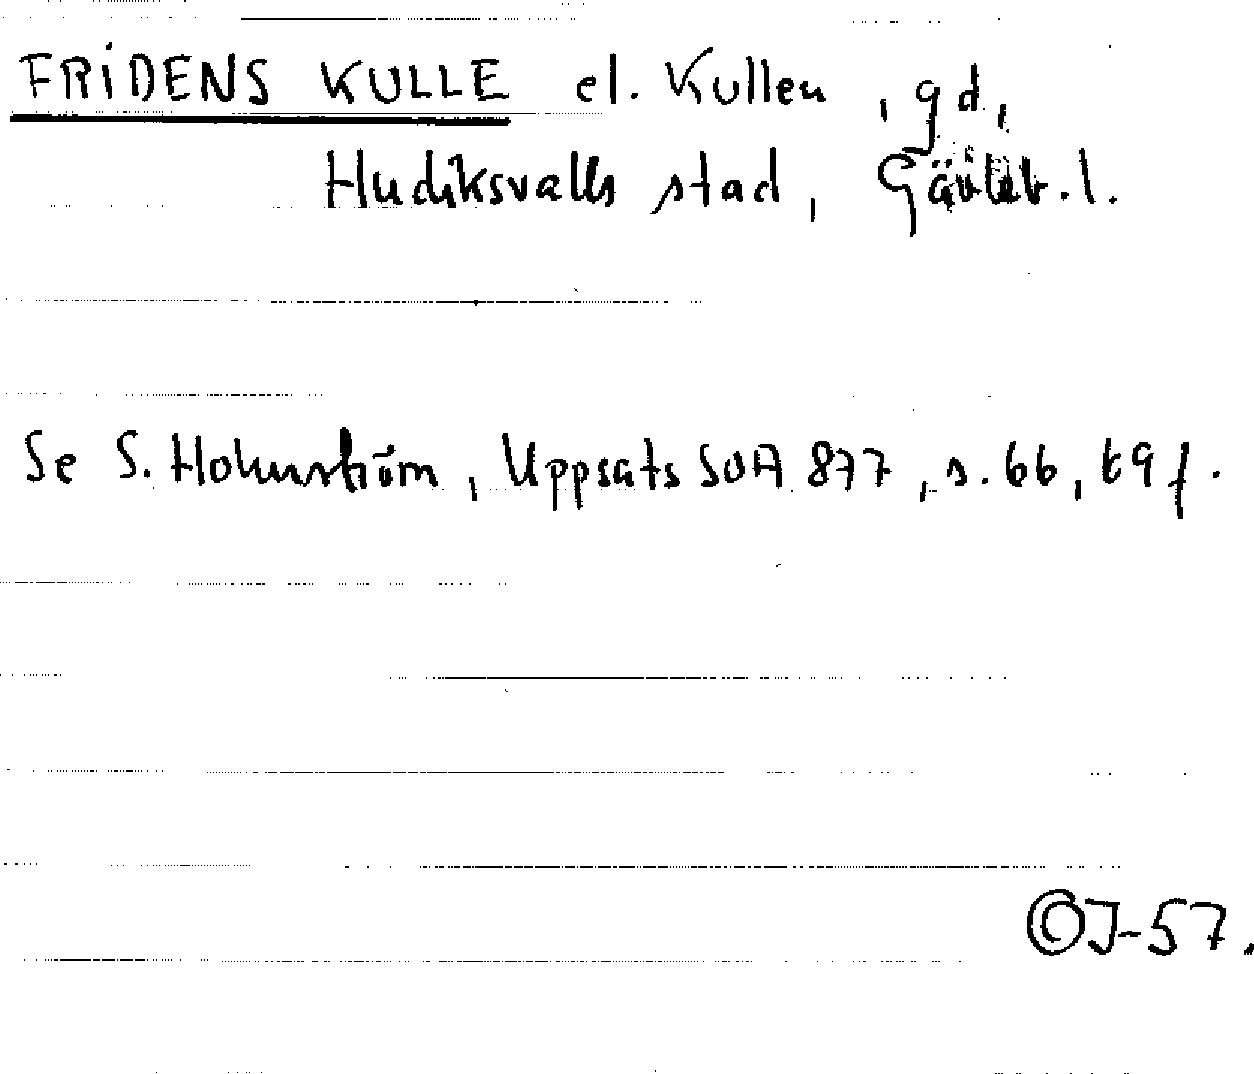 FRIDENS KULLE el. Kullen, gd,
Hudiksvalls stad, Gävleb. l.
Se S. Holmström, Uppsats SOA 877, s. 66, 69 f.
©J-57.